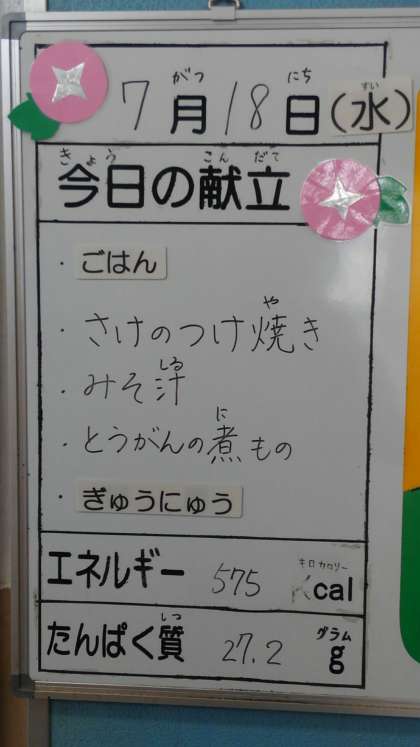 がつ にち すい
7月18日(水)
きょう こんだて
今日の献立
・ごはん
や
・さけのつけ焼き
しる
・みそ汁
に
・とうがんの煮もの
・ぎゅうにゅう
キロカロリー
エネルギー 575 Kcal
しつ グラム
たんぱく質 27.2 g